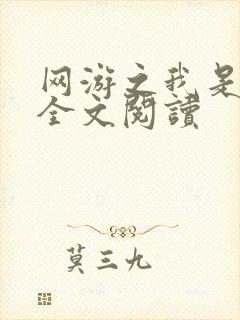 网游之我是
全文閱讀
莫三九